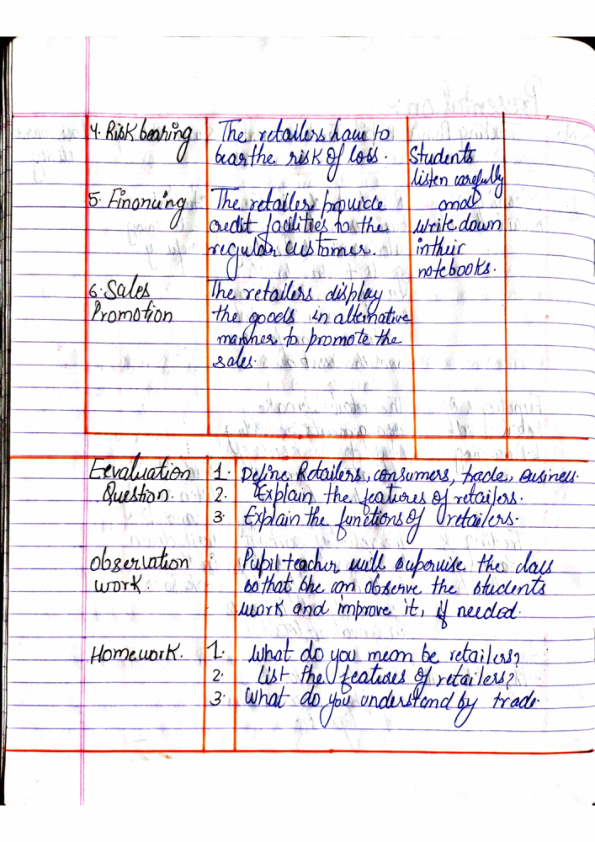 4. Risk bearing
The retailers have to
bear the risk of loss.
5. Financing
The retailers provide
credit facilities to the
regular customer.
6. Sales
Promotion
The retailers display
the goods in alternative
manner to promote the
sales.
Students
listen carefully
and
write down
in their
notebooks.
Eevaluation
Question.
1. Define Retailers, consumers, trade, Business.
2. Explain the features of retailers.
3. Explain the functions of retailers.
Observation
work.
: Pupil-teacher will supervise the class
so that she can observe the students
work and improve it, if needed.
Homework.
1. What do you mean be retailers?
2. List the features of retailers?
3. What do you understand by trade.